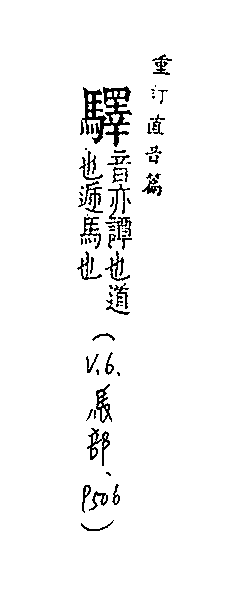 重訂直音篇
驛
音亦譚也道
也遞馬也
(V.6.馬部、P506)